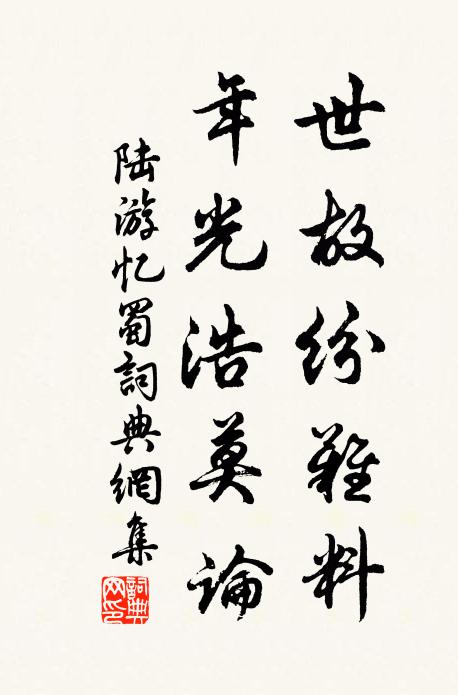 世故纷難料
年光浩莫論
陆游忆蜀詞典網集
詞典网印